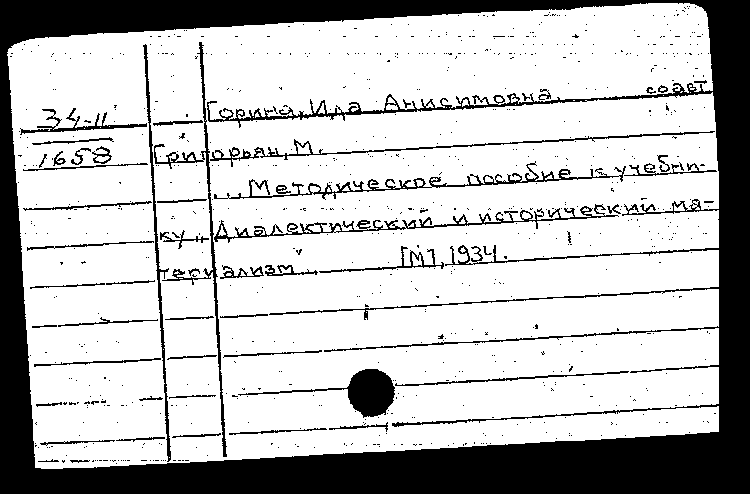 34-11 Горина, Ида Анисимовна соавт
1658 Григорьян, М.
... Методическое пособие к учебни-
ку „Диалектический и исторический ма-
териализм... [М], 1934.